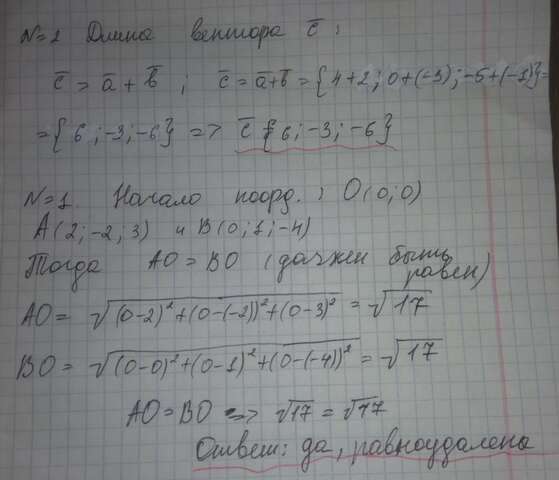 N=2 Длина вектора c̅ :
c̅ = a̅ + b̅ ; c̅ = a̅+b̅ = {4+2; 0+(-3); -5+(-1)}=
={6;-3;-6} => c̅ {6;-3;-6}
N=1. Начало коорд. : O(0;0)
A(2;-2;3) и B(0;1;-4)
Тогда AO = BO (должен быть равен)
AO = √(0-2)²+(0-(-2))²+(0-3)² = √17
BO = √(0-0)²+(0-1)²+(0-(-4))² = √17
AO=BO => √17 = √17
Ответ: да, равноудалены